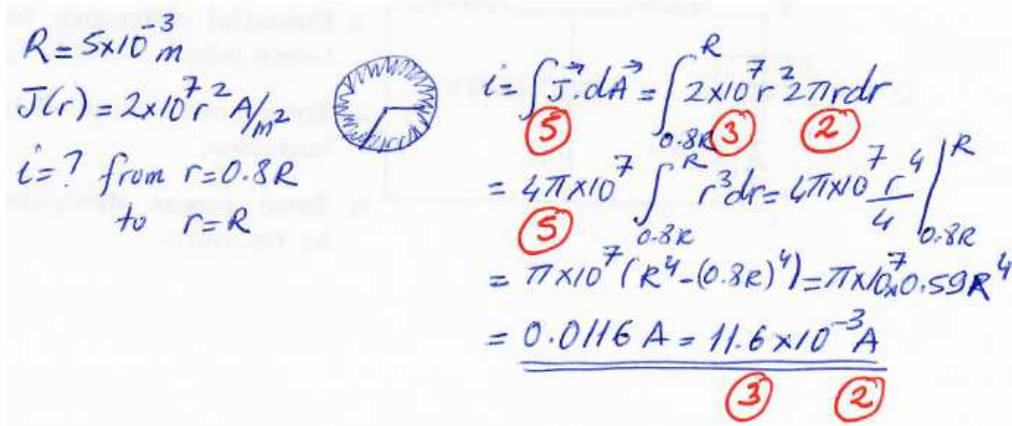 R = 5x10⁻³ m
J(r) = 2x10⁷ r² A/m²
i = ? from r = 0.8R
to r = R
i = ∫ J⃗.dA⃗ = ∫_{0.8R}^{R} 2x10⁷ r² 2πr dr
5 3 2
= 4πx10⁷ ∫_{0.8R}^{R} r³ dr = 4πx10⁷ r⁴/4 |_{0.8R}^{R}
5
= πx10⁷ (R⁴ - (0.8R)⁴) = πx10⁷x0.59R⁴
= 0.0116 A = 11.6x10⁻³ A
3 2